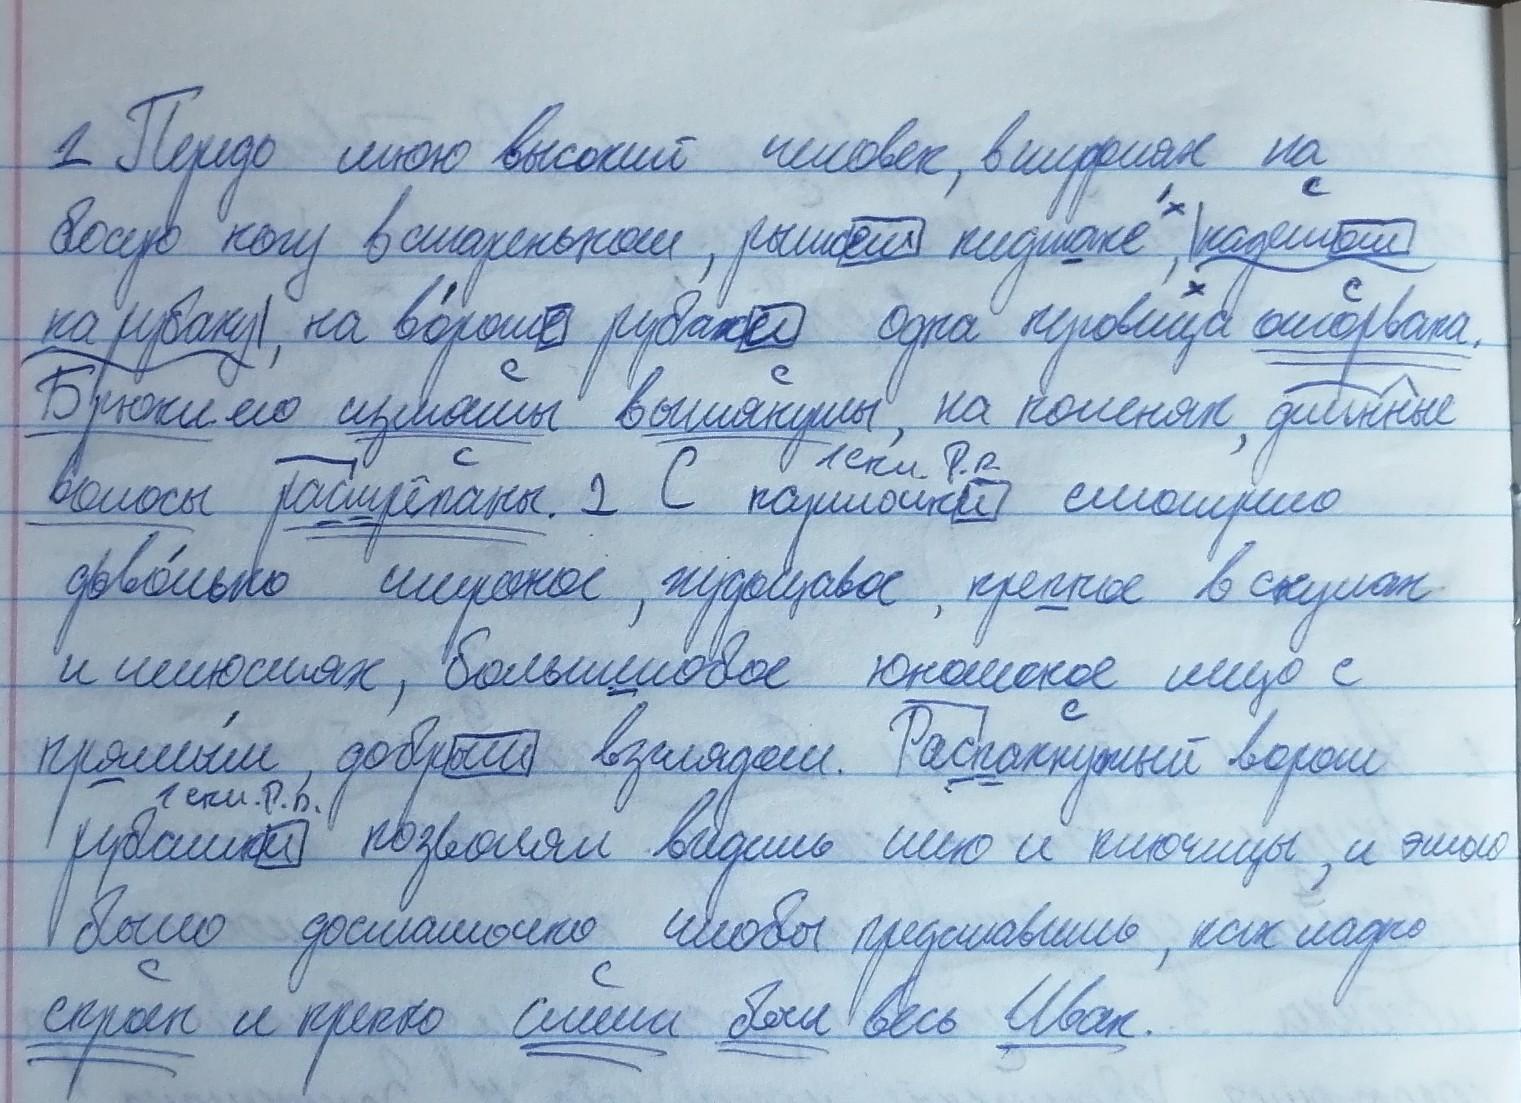 1 Передо мною высокий человек, в туфлях на
босую ногу в стареньком, рыжем пиджаке, надетом
на рубаху, на вороте рубахи одна пуговица оторвана.
Брюки его измяты вытянуты, на коленях, длинные
волосы растрёпаны. 2 С карточки смотрело
довольно широкое, худощавое, крепкое в скулах
и челюстях, большелобое юношское лицо с
прямым, добрым взглядом. Распахнутый ворот
рубашки позволял видеть шею и ключицы, и этого
было достаточно чтобы представить, как ладно
скроен и крепко сшит был весь Иван.
1 скл. Р.п.
1 скл. Р.п.